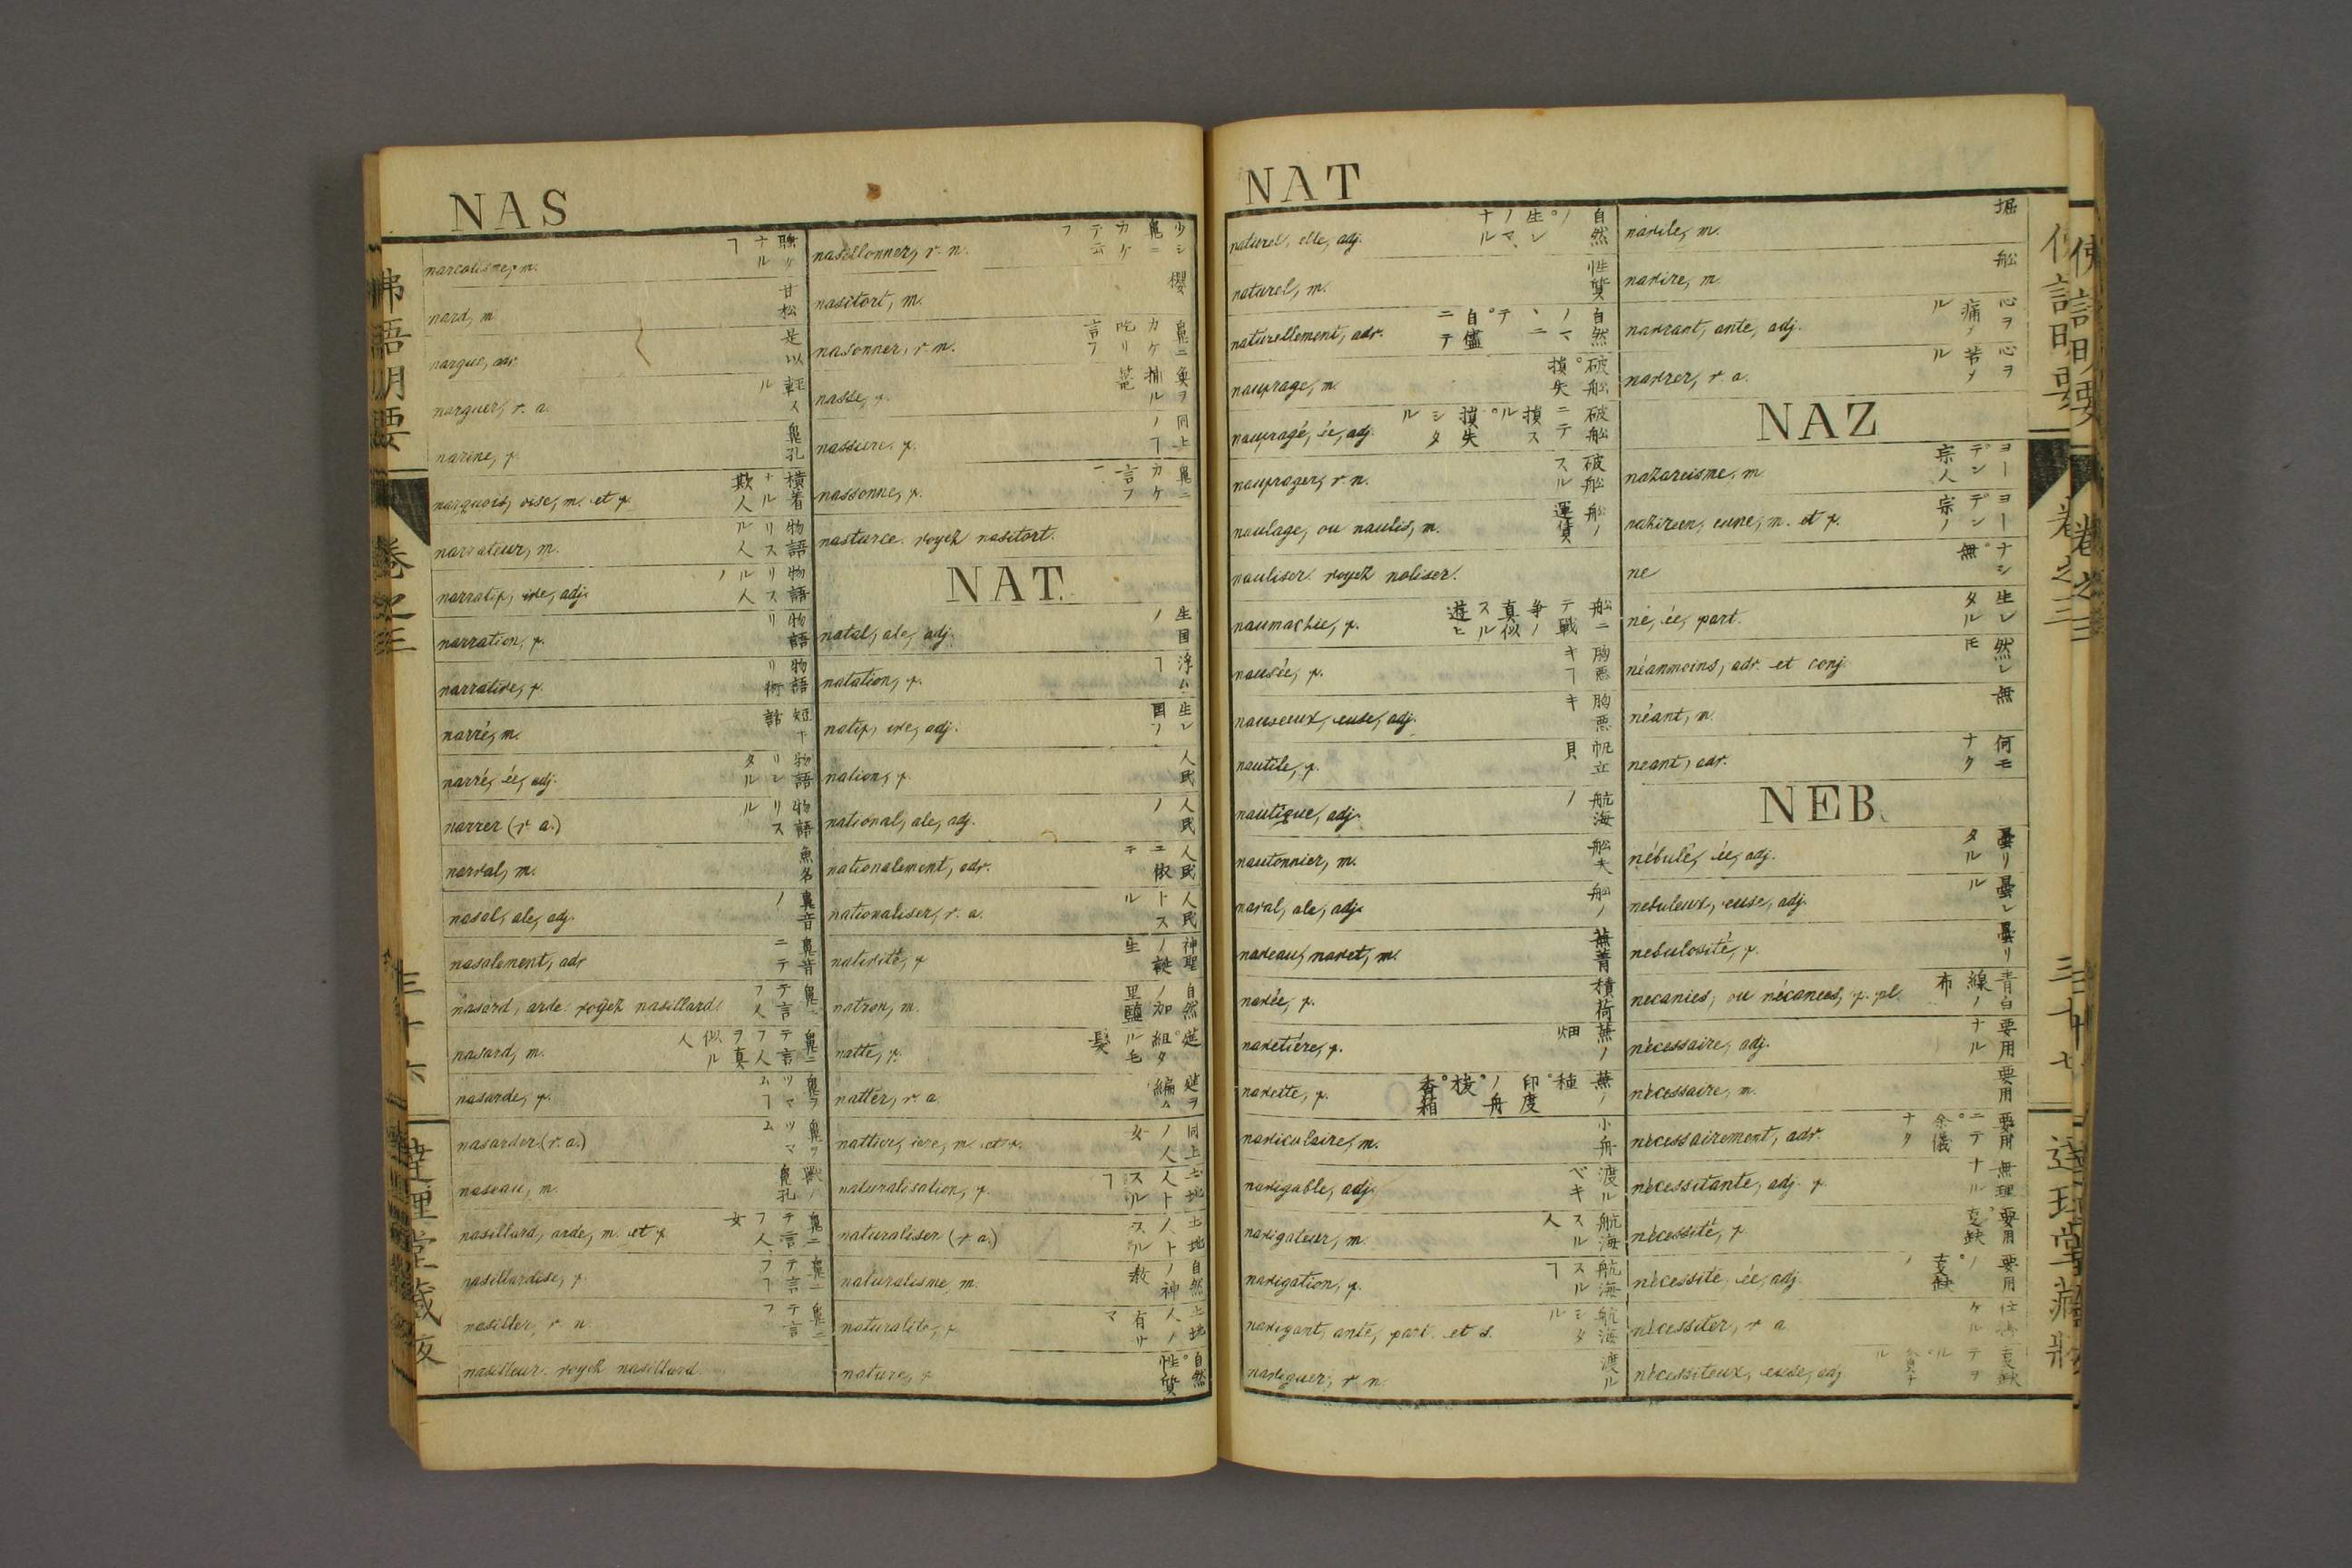 NAS
narcotisme, m. 
nard, m 甘松
nargue, adv. 是以
narguer, v. a. 軽スル
narine, f. 鼻孔
narquois, oise, m. et f. 横着ナル欺人
narrateur, m. 物語リスル人
narratif, ive, adj. 物語リスル人ノ
narration, f. 物語リ
narrative, f. 物語リ術
narré, m. 短キ話
narré, ée, adj. 物語リシタル
narrer (v. a.) 物語リスル
narval, m. 魚名
nasal, ale, adj. 鼻音ノ
nasalement, adv 鼻音ニテ
nasard, arde. voyez nasillard. 鼻ニテ言フ人
nasard, m. 鼻ニテ言フ人ヲ真似ル人
nasarde, f. 鼻ヲツマムヿ
nasarder (v. a.) 鼻ヲツマム
naseau, m. 獣ノ鼻孔
nasillard, arde, m. et f. 鼻ニテ言フ人 女
nasillardise, f. 鼻ニテ言フヿ
nasiller, v. n. 鼻ニテ言フ
nasilleur. voyez nasillard
nasillonner, v. n. 少シ鼻ニカケテ云フ
nasitort, m.
nasonner, v. n. 鼻ニカケ吃リ言フ
nasse, f. 魚ヲ捕ル篭
nassure, f. 同上ノヿ
nassonne, f. 鼻ニカケ言フ
nasturce. voyez nasitort.
NAT.
natal, ale, adj. 生国ノ
natation, f. 浮ムヿ
natif, ive, adj. 生レ国ノ
nation, f. 人民
national, ale, adj. 人民ノ
nationalement, adv. 人民ニ依テ
nationaliser, v. a. 人民トスル
nativité, f 神聖ノ誕生
natron, m. 自然ノ加里鹽
natte, f. 莚°組タル髪毛
natter, v. a. 莚ヲ編ム
nattier, iere, m. et f. 同上ノ人 女
naturalisation, f. 土地人トスルヿ
naturaliser (v. a.) 土地ノ人トスル
naturalisme, m. 自然ノ神教
naturalité, f. 土地人ノ有サマ
nature, f 自然°性質
NAT
naturel, elle, adj. 自然ノ°生レノマヽナル
naturel, m. 性質
naturellement, adv. 自然ノマヽニテ°自儘ニテ
naufrage, m. 破舩°損失
naufragé, ée, adj. 破舩ニテ損スル°損失シタル
naufrager, v. n. 破舩スル
naulage, ou naulis, m. 舩ノ運賃
nauliser. voyez noliser.
naumachie, f. 舩ニテ戦争ノ真似スル遊ヒ
nausée, f. 胸悪キヿ
nauseeux, euse, adj. 胸悪キ
nautile, f. 帆立貝
nautique, adj. 航海ノ
nautonnier, m. 舩夫
naval, ale, adj. 舩ノ
naveau, navet, m. 蕪菁
navée, f. 積荷
navetière, f. 蕪ノ畑
navette, f. 蕪ノ種°印度ノ舟°梭°香箱
naviculaire, m. 小舟
navigable, adj. 渡ルベキ
navigateur, m. 航海スル人
navigation, f. 航海スルヿ
navigant, ante, part. et s. 航海シタル
naviguer, v. n. 渡ル
navile, m. 堀
navire, m. 舩
navrant, ante, adj. 心ヲ痛メル
navrer, v. a. 心ヲ苦メル
NAZ
nazareisme, m ヨーデン宗人
naziréen, éene, m. et f. ヨーデン宗ノ
ne ナシ°無
né, ée, part. 生レタル
néanmoins, adv. et conj. 然レモ
néant, m. 無
neant, adv. 何モナク
NEB.
nébulé, ée, adj. 曇リタル
nebuleux, euse, adj. 曇レル
nebulosité, f. 曇リ
necanies, ou nécanees, f. pl. 青白線ノ布
nécessaire, adj. 要用ナル
nécessaire, m. 要用
nécessairement, adv. 要用ニテ°余儀ナク
nécessitante, adj. f. 無理ナル
nécessité, f 要用°支缺
nécessité, ée, adj. 要用ノ°支缺ノ
nécessiter, v. a.
nécessiteux, euse, adj
佛語明要
卷之三
三十六
達理堂蔵版
佛語明要
卷之三
三十七
達理堂蔵版